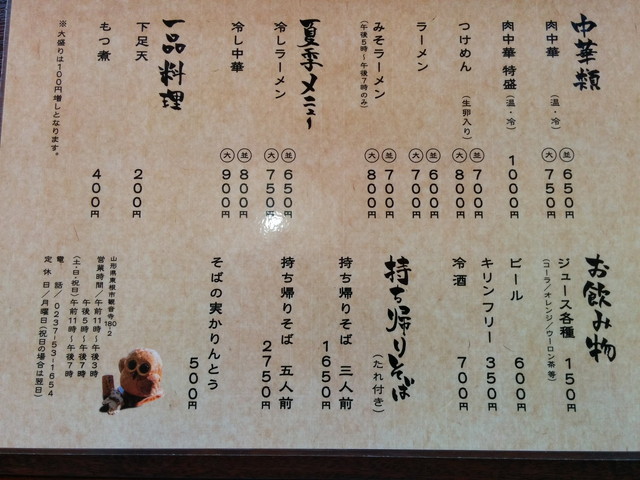 中華類
肉中華 (温・冷) 並 650円
大 750円
肉中華 特盛 (温・冷) 1000円
つけめん (生卵入り) 並 700円
大 800円
ラーメン 並 600円
大 700円
みそラーメン 並 700円
(午後5時〜午後7時のみ) 大 800円
夏季メニュー
冷しラーメン 並 650円
大 750円
冷し中華 並 800円
大 900円
一品料理
下足天 200円
もつ煮 400円
※大盛りは100円増しとなります。
お飲み物
ジュース各種 150円
(コーラ/オレンジ/ウーロン茶 等)
ビール 600円
キリンフリー 350円
冷酒 700円
持ち帰りそば (たれ付き)
持ち帰りそば 三人前 1650円
持ち帰りそば 五人前 2750円
そばの実かりんとう 500円
山形県東根市観音寺180-2
営業時間/午前11時〜午後3時
午後5時〜午後7時
(土・日・祝日)午前11時〜午後7時
電話/0237-53-1654
定休日/月曜日(祝日の場合は翌日)